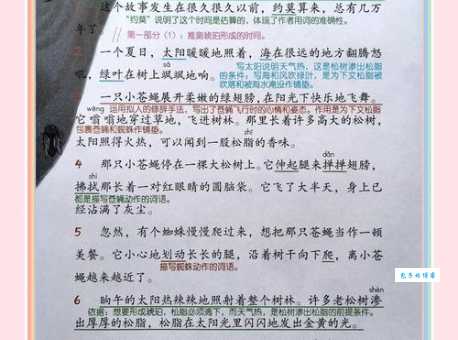 这个故事发生在很久很久以前，约莫算来，总有几万
"约莫"说明了这个时间是估算的，体现了作者用词的准确性。
第一部分（1）：推测琥珀形成的时间。
一个夏日，太阳暖暖地照着，海在很远的地方翻腾怒
吼，绿叶在树上飒飒地响。
写太阳说明天气热，这是松树渗出松脂
的条件；写海和风吹绿叶，是为下文松脂被
吹落和被海水淹没作铺垫。
一只小苍蝇展开柔嫩的绿翅膀，在阳光下快乐地飞舞。
wēng
运用拟人的修辞手法，写出了苍蝇飞行时的心情和姿态，作用是为下文松脂
它嗡嗡地穿过草地，飞进树林。那里长着许多高大的松树，
包裹苍蝇和蜘蛛作铺垫。
太阳照得火热，可以闻到一股松脂的香味。
dǎn
4 那只小苍蝇停在一棵大松树上。它伸起腿来掸掸翅膀，
shì
拂拭那长着一对红眼睛的圆脑袋。它飞了大半天，身上已
都是描写苍蝇动作的词语。
经沾满了灰尘。
5 忽然，有个蜘蛛慢慢爬过来，想把那只苍蝇当作一顿
美餐。它小心地划动长长的腿，沿着树干向下爬，离小苍
描写蜘蛛动作的词语。
蝇越来越近了。
shèn
6 晌午的太阳热辣辣地照射着整个树林。许多老松树渗
依据：想要形成琥珀，松脂必须滴下，而天气热，是松树渗出松脂的前提条件。
出厚厚的松脂，松脂在太阳光里闪闪地发出金黄的光。